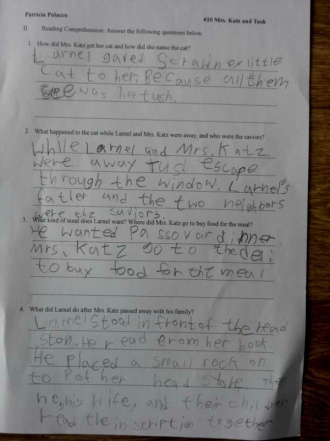 Patricia Polacco #10 Mrs. Katz and Tush
II. Reading Comprehension: Answer the following questions below.
1. How did Mrs. Katz get her cat and how did she name the cat?
Larnel gaved Scrawnex little
Cat to her. Because all them
see was her tush.
2. What happened to the cat while Larnel and Mrs. Katz were away, and who were the saviors?
While Larnel and Mrs. Katz
were away Tush escape
through the window. Larnel's
father and the two neighbors
were the saviors.
3. What kind of meal does Larnel want? Where did Mrs. Katz go to buy food for the meal?
He wanted Passovar dinner.
Mrs, Katz go to the deli
to buy food for the meal
4. What did Larnel do after Mrs. Katz passed away with his family?
Larnel Stood in front of the head
Ston. He read from her book.
He placed a small rock on
to P of her head Stone. The
he, his Wife, and their children
read the inscription together